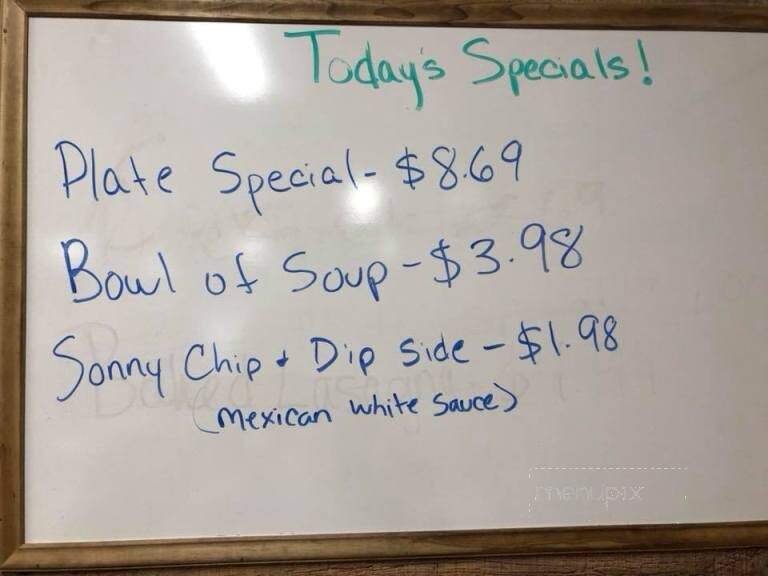 Today's Specials!
Plate Special - $8.69
Bowl of Soup - $3.98
Sonny Chip & Dip Side - $1.98
(Mexican white Sauce)
menupix